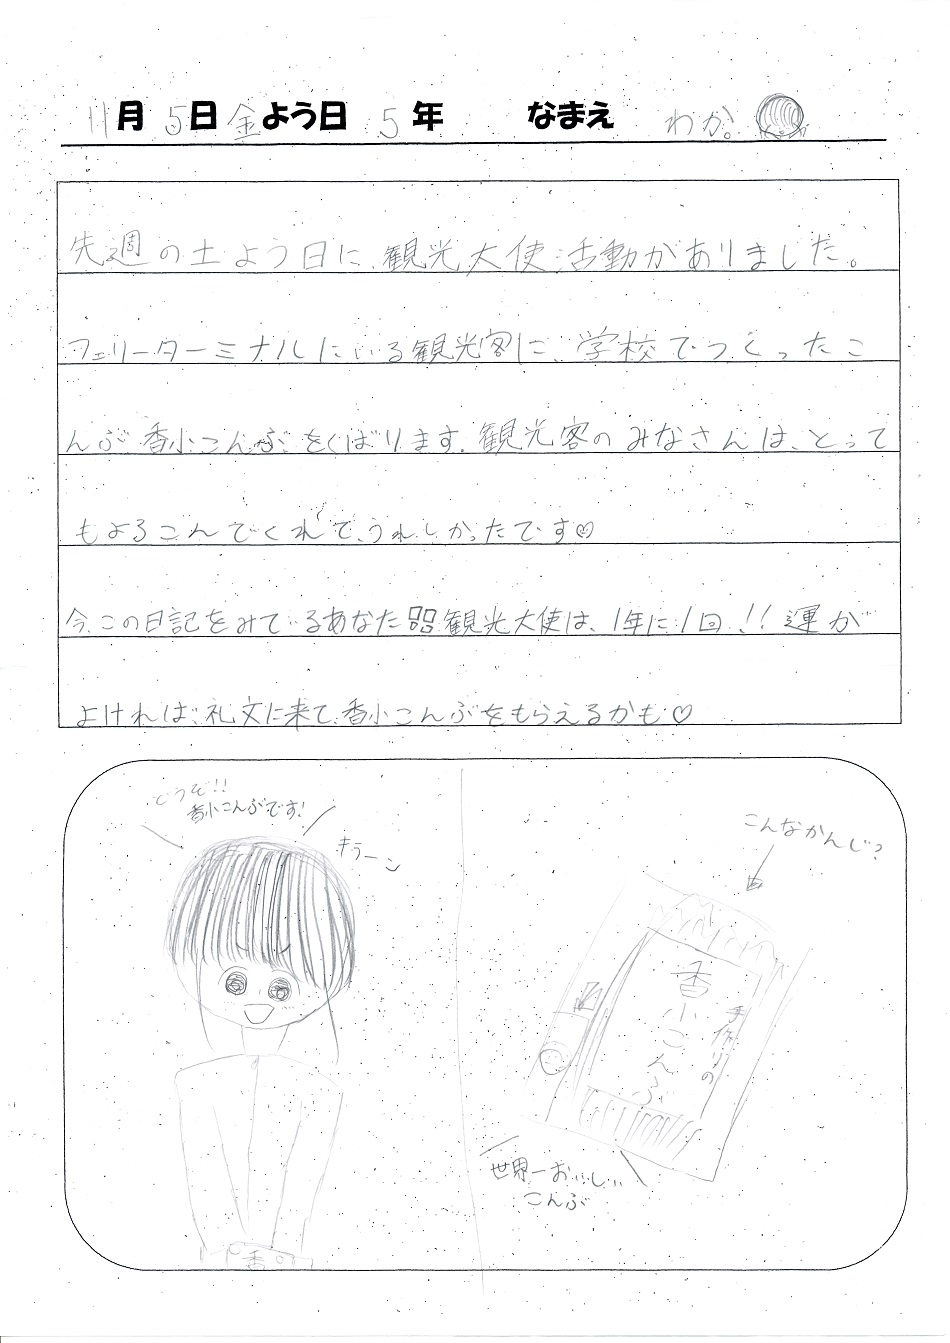 11月5日金よう日 5年 なまえ わか。
先週の土よう日に、観光大使活動がありました。
フェリーターミナルにいる観光客に、学校でつくったこ
んぶ香小こんぶをくばります。観光客のみなさんは、とって
もよろこんでくれて、うれしかったです♡
今この日記をみているあなた!!観光大使は、1年に1回!!運が
よければ、礼文に来て香小こんぶをもらえるかも♡
どうぞ!!
香小こんぶです!
キラーン
こんなかんじ?
手作りの
香小こんぶ
世界一おいしい
こんぶ
香